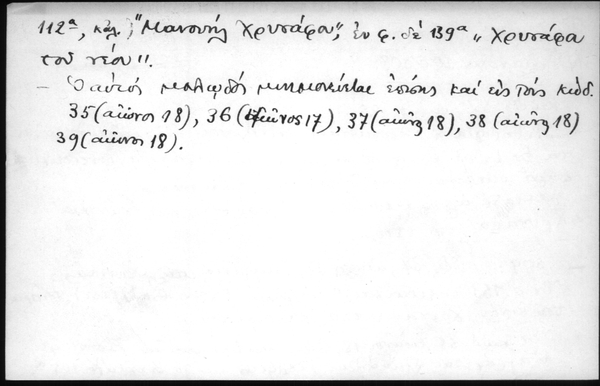 112α, κἀλ. „Μανουήλ Χρυσάφου”, ἐν φ. δέ 139α „Χρυσάφα
τοῦ νέου".
— Ὁ αὐτός μελῳδός μνημονεύεται ἐπίσης καί εἰς τούς κώδ.
35 (αἰῶνος 18), 36 (αἰῶνος 17), 37 (αἰῶνος 18), 38 (αἰῶνος 18)
39 (αἰῶνος 18).